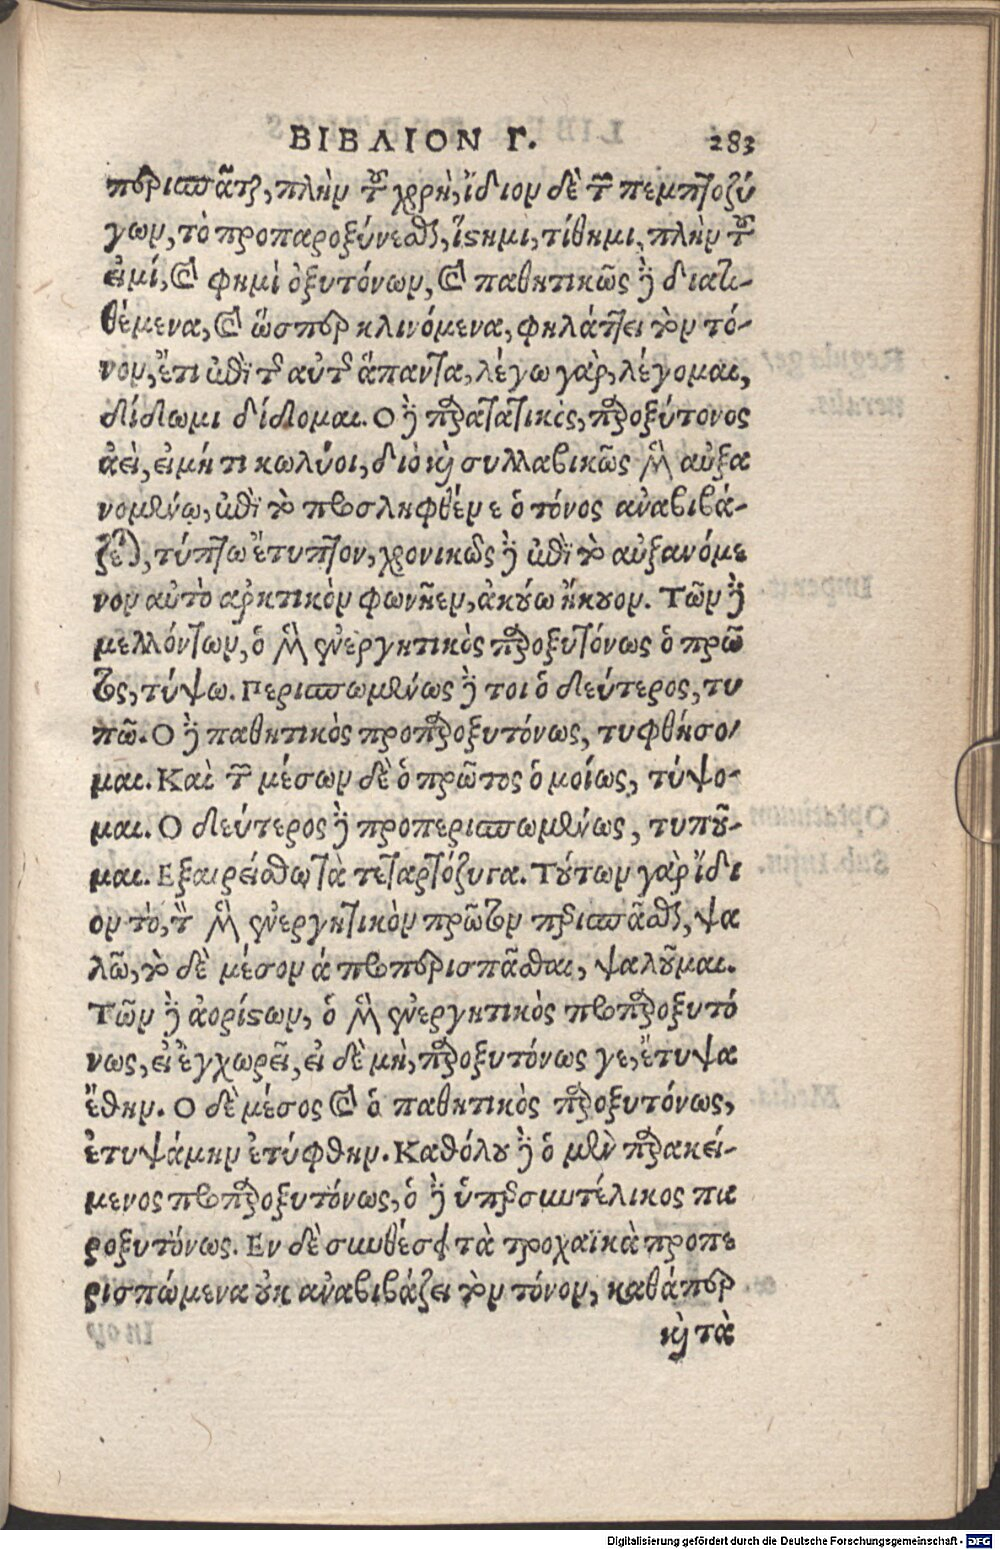 ΒΙΒΛΙΟΝ Γ. 283
περισπᾶται, πλὴν τοῦ χρὴ, ἴδιον δὲ τῶν πεμπτοζύ
γων, τὸ προπαροξύνεσθαι, ἵστημι, τίθημι, πλὴν τοῦ
εἰμί, καὶ φημὶ ὀξυτόνων, καὶ παθητικῶς ἢ διατι-
θέμενα, καὶ ὥσπερ κλινόμενα, φηλάττει τὸν τό-
νον, ἔτι ἐπὶ τοῦ αὐτοῦ ἅπαντα, λέγω γὰρ, λέγομαι,
δίδωμι δίδομαι. Ο δὲ παρατατικὸς, παροξύτονος
ἀεὶ, εἰ μή τι κωλύοι, διὸ καὶ συλλαβικῶς μὲν αὐξα
νομένῳ, ἐπὶ τὸ προσληφθέν ε ὁ τόνος ἀναβιβά-
ζεται, τύπτω ἔτυπτον, χρονικῶς δὲ ἐπὶ τὸ αὐξανόμε
νον αὐτὸ ἀρκτικὸν φωνῆεν, ἀκούω ἤκουον. Τῶν δὲ
μελλόντων, ὁ μὲν ἐνεργητικὸς παροξυτόνως ὁ πρῶ
τος, τύψω. Περισπωμένως δὲ τοι ὁ δεύτερος, τυ
πῶ. Ο δὲ παθητικὸς προπαροξυτόνως, τυφθήσο-
μαι. Καὶ τῶν μέσων δὲ ὁ πρῶτος ὁμοίως, τύψο-
μαι. Ο δεύτερος δὲ προπερισπωμένως, τυποῦ-
μαι. Εξαιρείσθω τὰ τεταρτόζυγα. Τούτων γὰρ ἴδι
ον τὸ, τὸν μὲν ἐνεργητικὸν πρῶτον περισπᾶσθαι, ψα
λῶ, τὸ δὲ μέσον ἀ προπερισπᾶσθαι, ψαλοῦμαι.
Τῶν δὲ ἀορίστων, ὁ μὲν ἐνεργητικὸς προπαροξυτό
νως, εἰ ἐγχωρεῖ, εἰ δὲ μὴ, παροξυτόνως γε, ἔτυψα
ἔθην. Ο δὲ μέσος καὶ ὁ παθητικὸς παροξυτόνως,
ἐτυψάμην ἐτύφθην. Καθόλου δὲ ὁ μὲν παρακεί-
μενος προπαροξυτόνως, ὁ δὲ ὑπερσυντέλικος πα
ροξυτόνως. Εν δὲ συνθέσει τὰ τροχαϊκὰ προπε
ρισπώμενα οὐκ ἀναβιβάζει τὸν τόνον, καθάπερ
καὶ τὰ
Digitalisierung gefördert durch die Deutsche Forschungsgemeinschaft - DFG